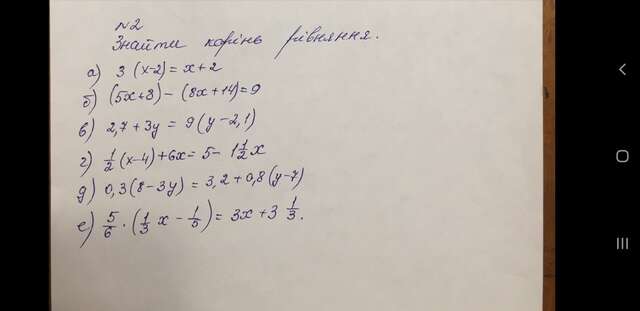 №2
Знайти корінь рівняння.
а) 3(x-2)=x+2
б) (5x+8)-(8x+14)=9
в) 2,7+3y=9(y-2,1)
г) 1/2(x-4)+6x=5-1 1/2x
д) 0,3(8-3y)=3,2+0,8(y-7)
е) 5/6·(1/3x-1/5)=3x+3 1/3.